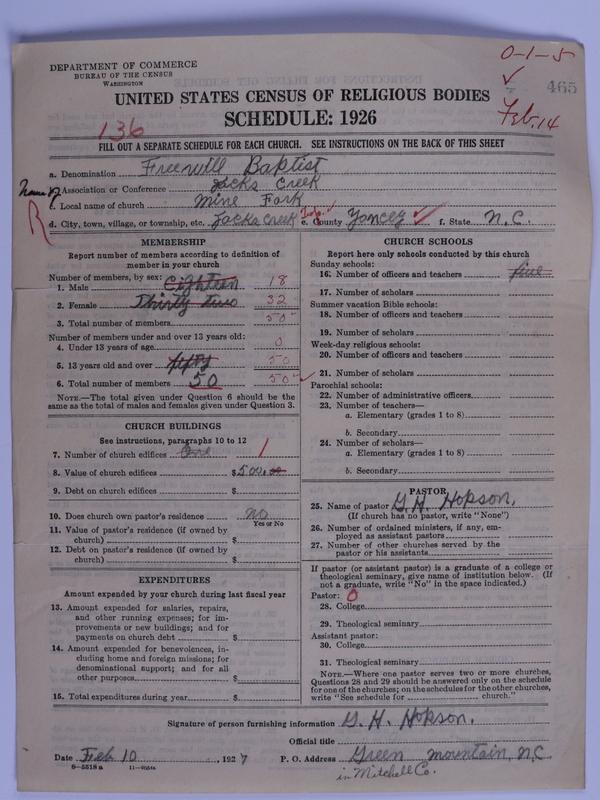 DEPARTMENT OF COMMERCE
BUREAU OF THE CENSUS
WASHINGTON
0-1-5
465
Feb. 14
UNITED STATES CENSUS OF RELIGIOUS BODIES
SCHEDULE: 1926
136
FILL OUT A SEPARATE SCHEDULE FOR EACH CHURCH. SEE INSTRUCTIONS ON THE BACK OF THIS SHEET
a. Denomination Freewill Baptist
Name of Association or Conference Jacks Creek
c. Local name of church Mine Fork
d. City, town, village, or township, etc. Jacks Creek Twp. e. County Yancey f. State N.C.
MEMBERSHIP
Report number of members according to definition of member in your church
Number of members, by sex:
1. Male Eighteen 18
2. Female Thirty two 32
3. Total number of members 50
Number of members under and over 13 years old:
4. Under 13 years of age 0
5. 13 years old and over fifty 50
6. Total number of members 50 50
NOTE.—The total given under Question 6 should be the same as the total of males and females given under Question 3.
CHURCH BUILDINGS
See instructions, paragraphs 10 to 12
7. Number of church edifices One 1
8. Value of church edifices $500.00
9. Debt on church edifices $
10. Does church own pastor's residence No
Yes or No
11. Value of pastor's residence (if owned by church) $
12. Debt on pastor's residence (if owned by church) $
EXPENDITURES
Amount expended by your church during last fiscal year
13. Amount expended for salaries, repairs, and other running expenses; for improvements or new buildings; and for payments on church debt $
14. Amount expended for benevolences, including home and foreign missions; for denominational support; and for all other purposes $
15. Total expenditures during year $
CHURCH SCHOOLS
Report here only schools conducted by this church
Sunday schools:
16. Number of officers and teachers five
17. Number of scholars
Summer vacation Bible schools:
18. Number of officers and teachers
19. Number of scholars
Week-day religious schools:
20. Number of officers and teachers
21. Number of scholars
Parochial schools:
22. Number of administrative officers
23. Number of teachers—
a. Elementary (grades 1 to 8)
b. Secondary
24. Number of scholars—
a. Elementary (grades 1 to 8)
b. Secondary
PASTOR
25. Name of pastor G. H. Hopson,
(If church has no pastor, write "None")
26. Number of ordained ministers, if any, employed as assistant pastors
27. Number of other churches served by the pastor or his assistants
If pastor (or assistant pastor) is a graduate of a college or theological seminary, give name of institution below. (If not a graduate, write "No" in the space indicated.)
Pastor: 0
28. College
29. Theological seminary
Assistant pastor:
30. College
31. Theological seminary
NOTE.—Where one pastor serves two or more churches, Questions 28 and 29 should be answered only on the schedule for one of the churches; on the schedules for the other churches, write "See schedule for church."
Signature of person furnishing information G. H. Hopson.
Official title
Date Feb 10, 1927 P. O. Address Green mountain, N.C
in Mitchell Co.
8-5518a 11-9054a